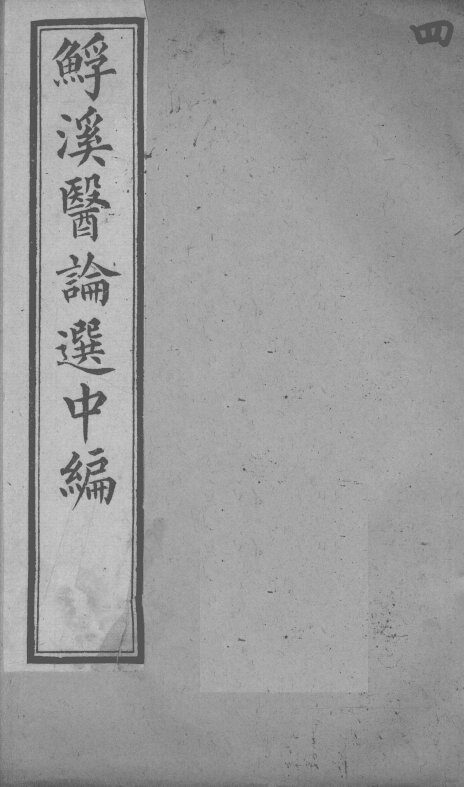 四
鯚溪醫論選中編